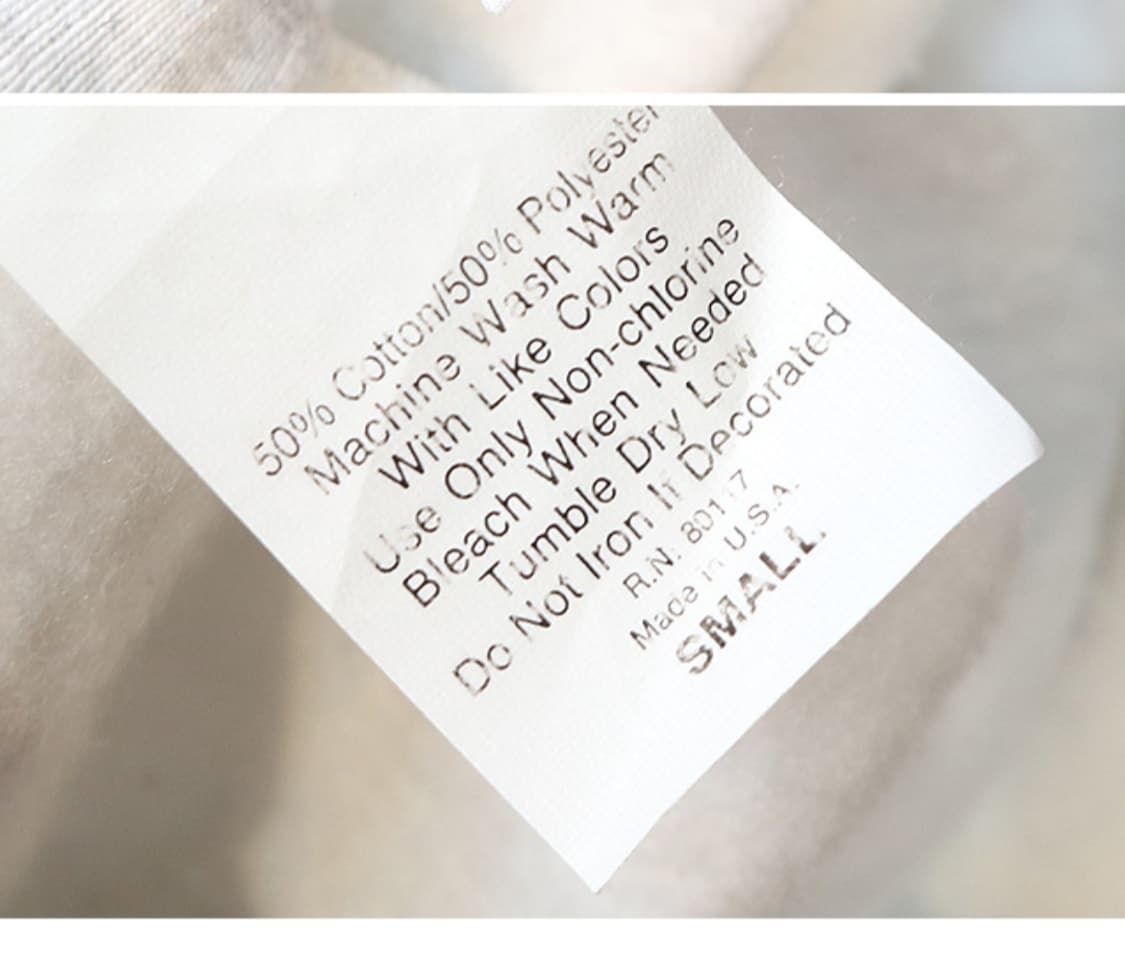 50% Cotton/50% Polyester
Machine Wash Warm
With Like Colors
Use Only Non-chlorine
Bleach When Needed
Tumble Dry Low
Do Not Iron If Decorated
R.N. 80117
Made in U.S.A.
SMALL